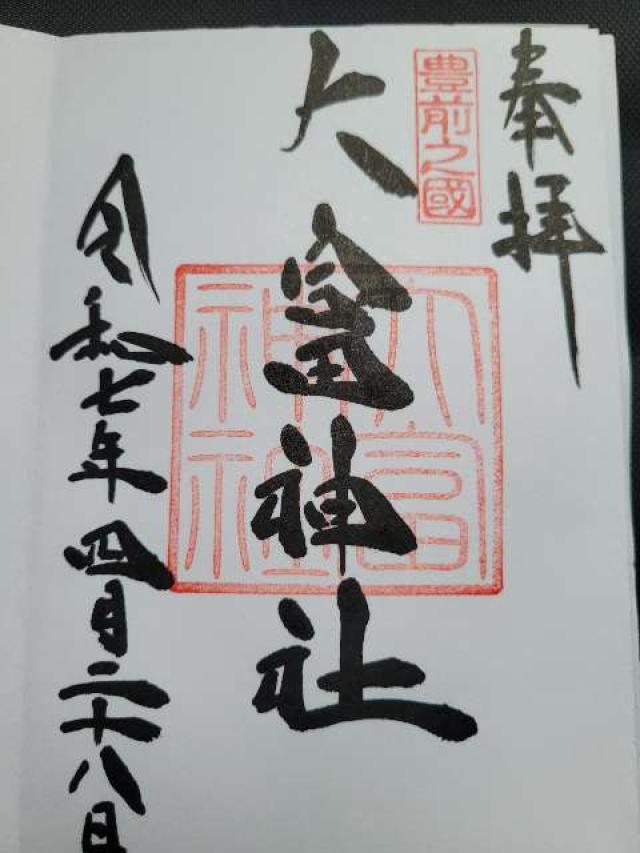 奉拝
豊前之國
大富神社
大富神社
令和七年四月二十八日